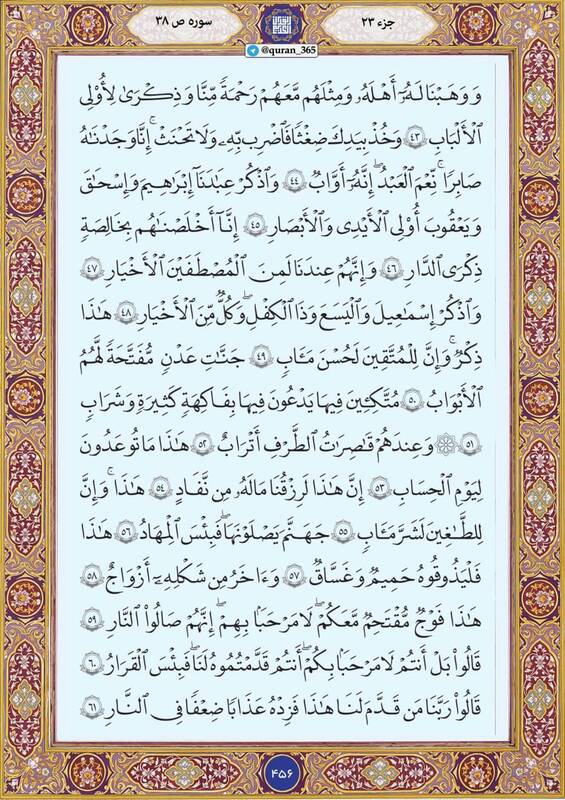 جزء ۲۳
سوره ص ۳۸
@quran_365
وَوَهَبْنَا لَهُۥٓ أَهْلَهُۥ وَمِثْلَهُم مَّعَهُمْ رَحْمَةً مِّنَّا وَذِكْرَىٰ لِأُو۟لِى
ٱلْأَلْبَٰبِ ﴿٤٣﴾ وَخُذْ بِيَدِكَ ضِغْثًا فَٱضْرِب بِّهِۦ وَلَا تَحْنَثْ ۗ إِنَّا وَجَدْنَٰهُ
صَابِرًا ۚ نِّعْمَ ٱلْعَبْدُ ۖ إِنَّهُۥٓ أَوَّابٌ ﴿٤٤﴾ وَٱذْكُرْ عِبَٰدَنَآ إِبْرَٰهِيمَ وَإِسْحَٰقَ
وَيَعْقُوبَ أُو۟لِى ٱلْأَيْدِى وَٱلْأَبْصَٰرِ ﴿٤٥﴾ إِنَّآ أَخْلَصْنَٰهُم بِخَالِصَةٍ
ذِكْرَى ٱلدَّارِ ﴿٤٦﴾ وَإِنَّهُمْ عِندَنَا لَمِنَ ٱلْمُصْطَفَيْنَ ٱلْأَخْيَارِ ﴿٤٧﴾
وَٱذْكُرْ إِسْمَٰعِيلَ وَٱلْيَسَعَ وَذَا ٱلْكِفْلِ ۖ وَكُلٌّ مِّنَ ٱلْأَخْيَارِ ﴿٤٨﴾ هَٰذَا
ذِكْرٌ ۚ وَإِنَّ لِلْمُتَّقِينَ لَحُسْنَ مَـَٔابٍ ﴿٤٩﴾ جَنَّٰتِ عَدْنٍ مُّفَتَّحَةً لَّهُمُ
ٱلْأَبْوَٰبُ ﴿٥٠﴾ مُتَّكِـِٔينَ فِيهَا يَدْعُونَ فِيهَا بِفَٰكِهَةٍ كَثِيرَةٍ وَشَرَابٍ
﴿٥١﴾ ۞ وَعِندَهُمْ قَٰصِرَٰتُ ٱلطَّرْفِ أَتْرَابٌ ﴿٥٢﴾ هَٰذَا مَا تُوعَدُونَ
لِيَوْمِ ٱلْحِسَابِ ﴿٥٣﴾ إِنَّ هَٰذَا لَرِزْقُنَا مَا لَهُۥ مِن نَّفَادٍ ﴿٥٤﴾ هَٰذَا ۚ وَإِنَّ
لِلطَّٰغِينَ لَشَرَّ مَـَٔابٍ ﴿٥٥﴾ جَهَنَّمَ يَصْلَوْنَهَا فَبِئْسَ ٱلْمِهَادُ ﴿٥٦﴾ هَٰذَا
فَلْيَذُوقُوهُ حَمِيمٌ وَغَسَّاقٌ ﴿٥٧﴾ وَءَاخَرُ مِن شَكْلِهِۦٓ أَزْوَٰجٌ ﴿٥٨﴾
هَٰذَا فَوْجٌ مُّقْتَحِمٌ مَّعَكُمْ ۖ لَا مَرْحَبًۢا بِهِمْ ۚ إِنَّهُمْ صَالُوا۟ ٱلنَّارِ ﴿٥٩﴾
قَالُوا۟ بَلْ أَنتُمْ لَا مَرْحَبًۢا بِكُمْ ۖ أَنتُمْ قَدَّمْتُمُوهُ لَنَا ۖ فَبِئْسَ ٱلْقَرَارُ ﴿٦٠﴾
قَالُوا۟ رَبَّنَا مَن قَدَّمَ لَنَا هَٰذَا فَزِدْهُ عَذَابًا ضِعْفًا فِى ٱلنَّارِ ﴿٦١﴾
۴۵۶